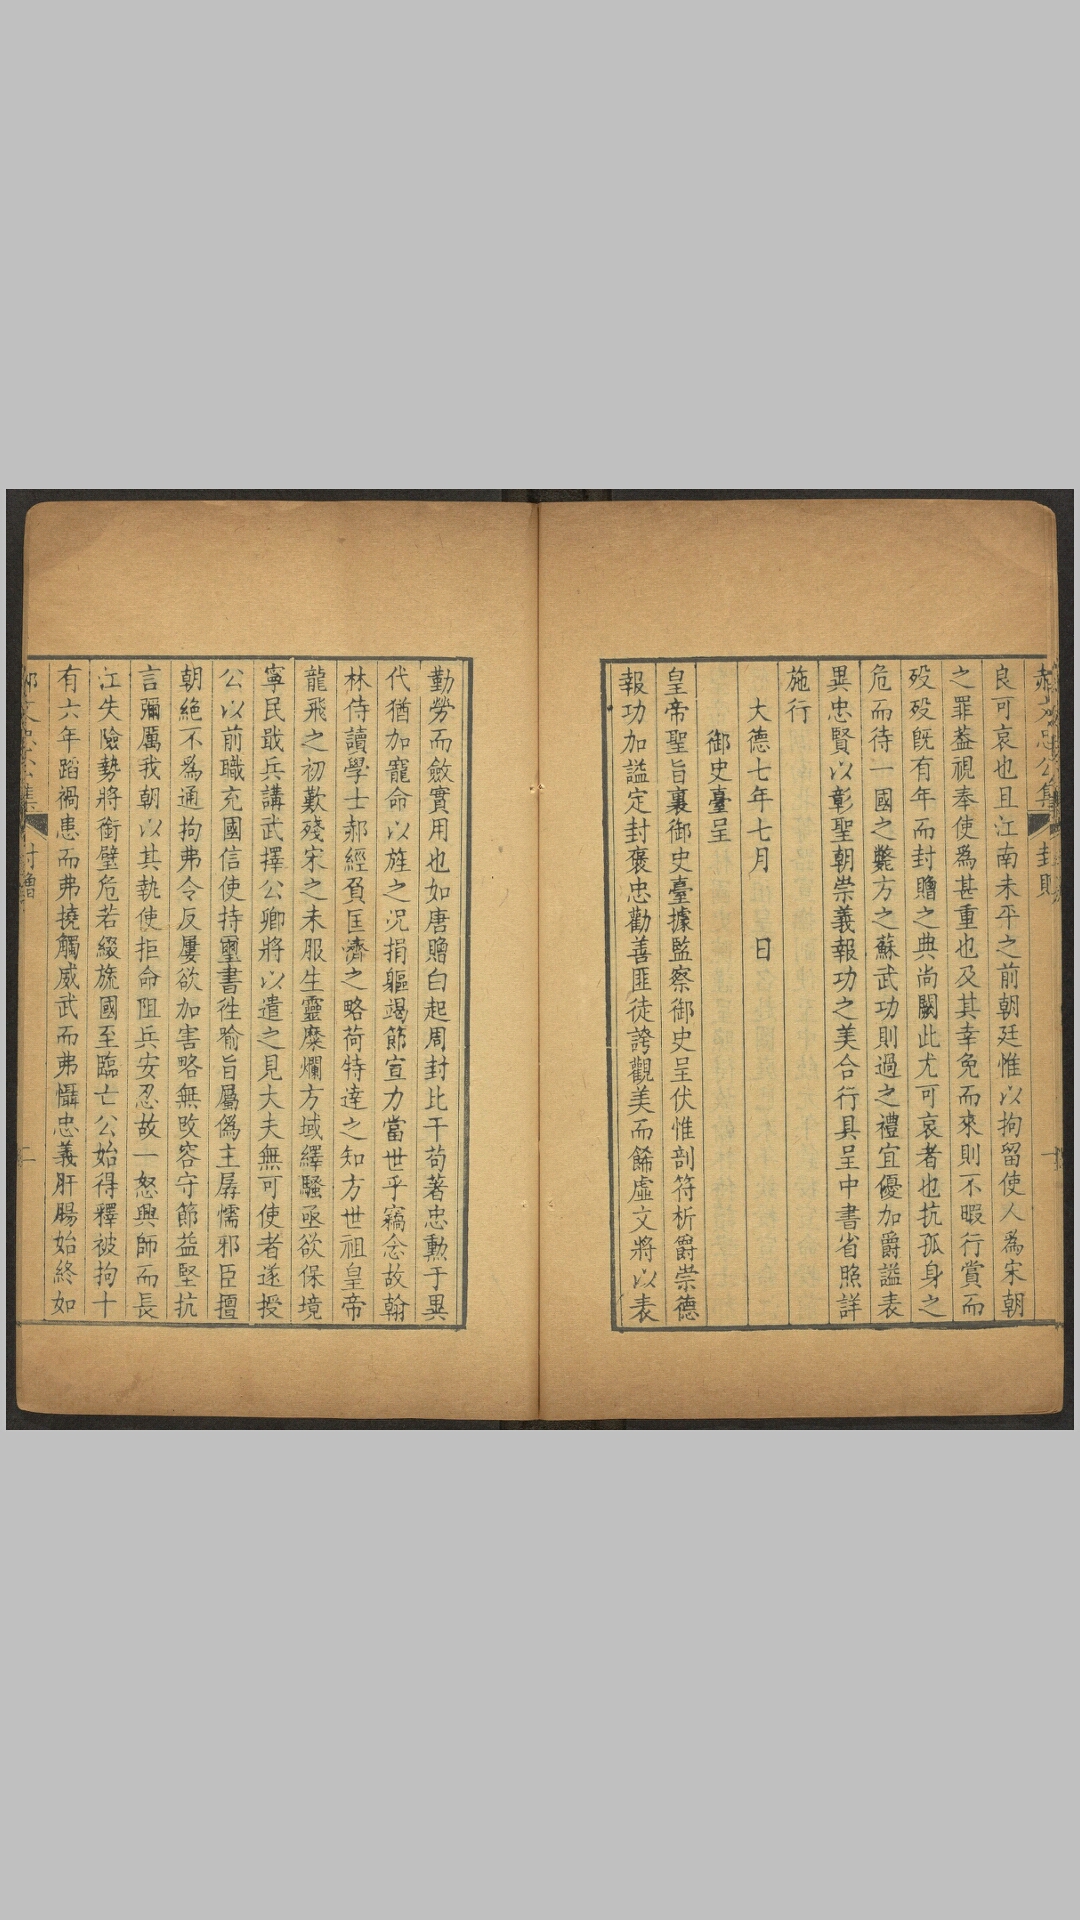 良可哀也且江南未平之前朝廷惟以拘留使人爲宋朝
之罪葢視奉使爲甚重也及其幸免而來則不暇行賞而
殁殁旣有年而封贈之典尚闕此尤可哀者也抗孤身之
危而待一國之斃方之蘇武功則過之禮宜優加爵謚表
異忠賢以彰聖朝崇義報功之美合行具呈中書省照詳
施行
大德七年七月 日
御史臺呈
皇帝聖旨裏御史臺據監察御史呈伏惟剖符析爵崇德
報功加謚定封褒忠勸善匪徒誇觀美而餙虛文將以表
勤勞而斂實用也如唐贈白起周封比干苟著忠勳于異
代猶加寵命以旌之况捐軀竭節宣力當世乎竊念故翰
林侍讀學士郝經負匡濟之略荷特達之知方世祖皇帝
龍飛之初歎殘宋之未服生靈糜爛方域繹騷亟欲保境
寧民戢兵講武擇公卿將以遣之見大夫無可使者遂授
公以前職充國信使持璽書徃喻旨屬僞主孱懦邪臣擅
朝絶不爲通拘弗令反屢欲加害略無改容守節益堅抗
言彌厲我朝以其執使拒命阻兵安忍故一怒興師而長
江失險勢將銜璧危若綴旒國至臨亡公始得釋被拘十
有六年蹈禍患而弗撓觸威武而弗懾忠義肝腸始終如